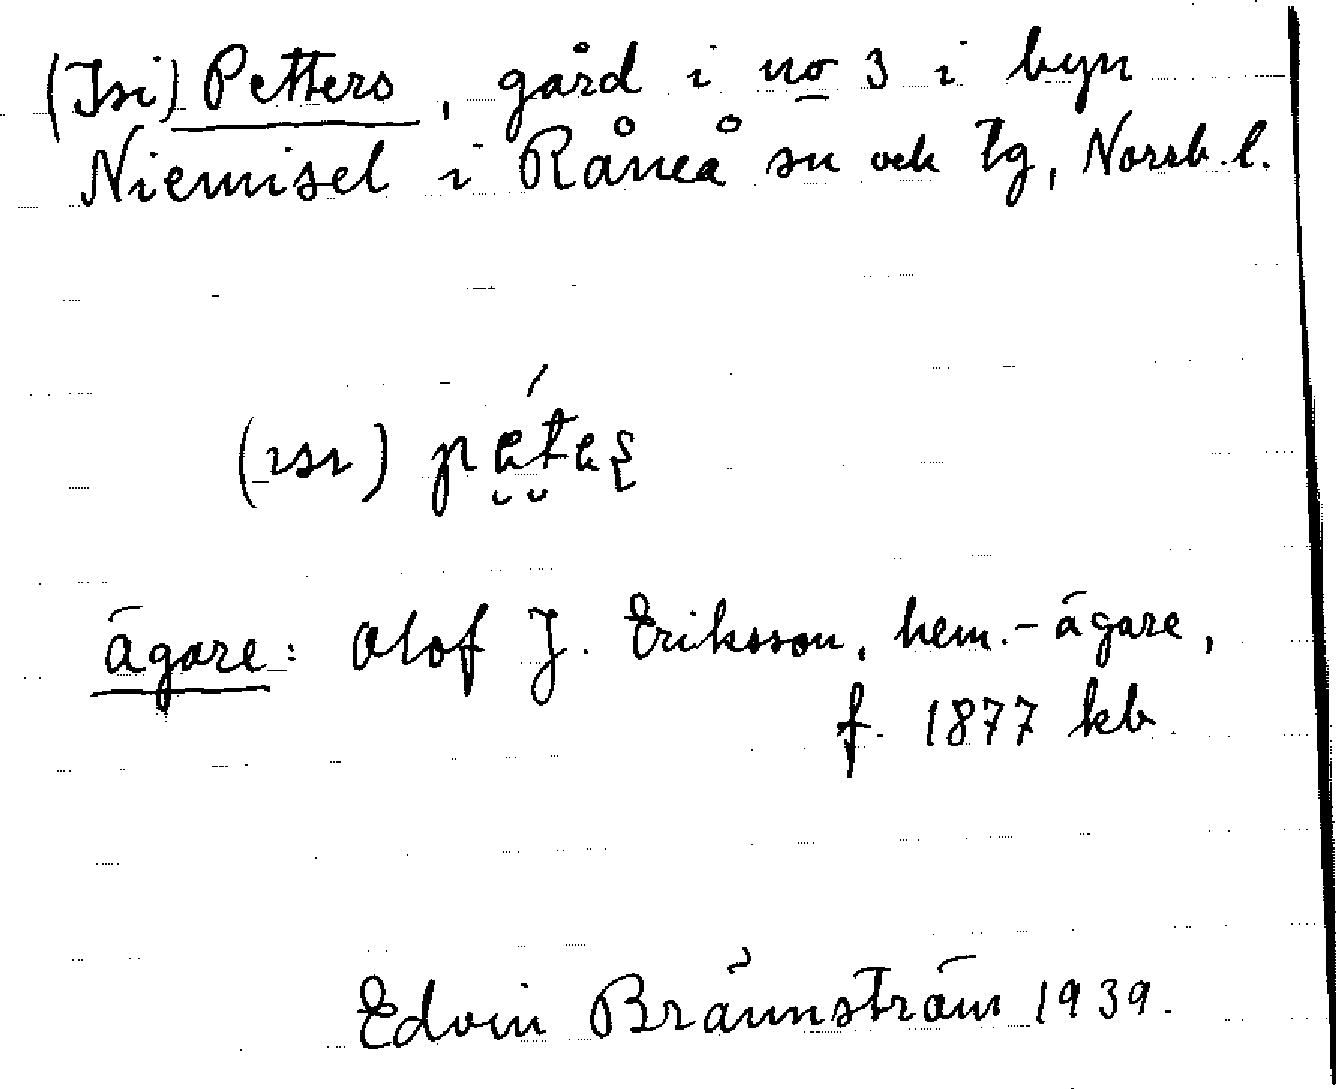 (Isi) Petters, gård i no 3 i byn
Niemisel i Råneå sn och tg, Norrb. l.
(ısı)
ägare: Olof J. Eriksson, hem.-ägare,
f. 1877 kb
Edvin Brännström 1939.